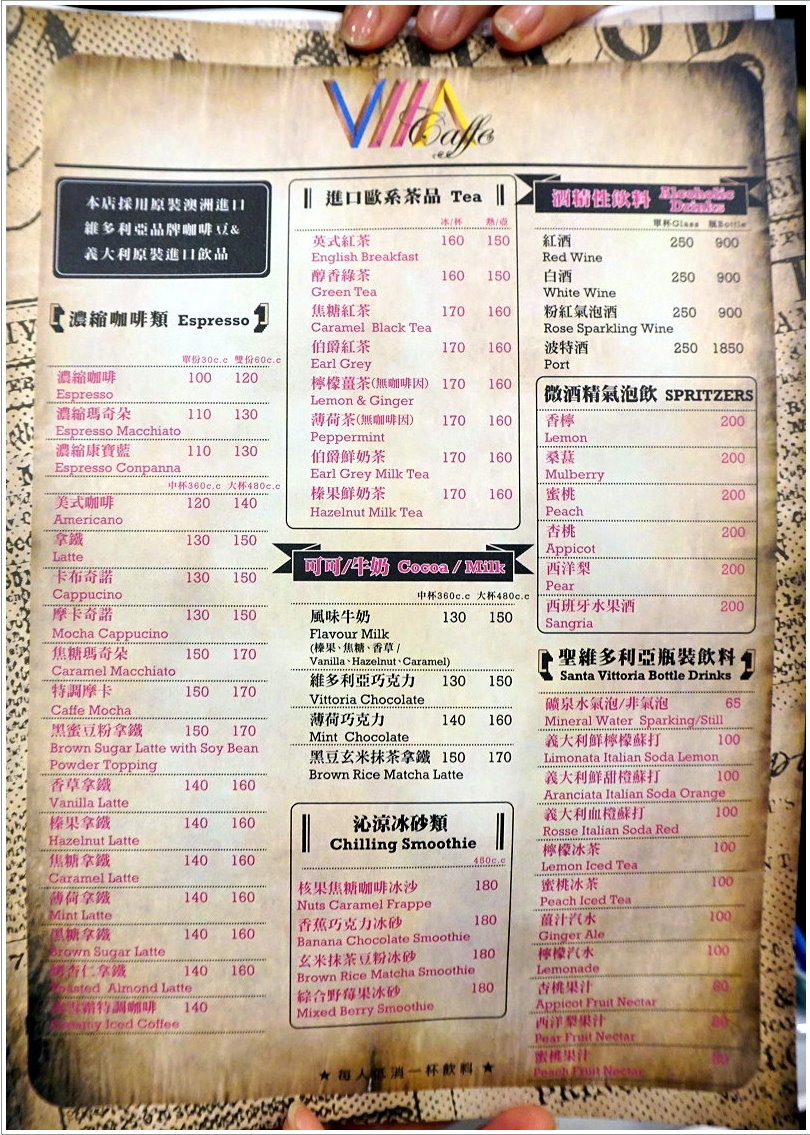 VIIA
Caffe
本店採用原裝澳洲進口
維多利亞品牌咖啡豆&
義大利原裝進口飲品
濃縮咖啡類 Espresso
單份30c.c 雙份60c.c
濃縮咖啡 100 120
Espresso
濃縮瑪奇朵 110 130
Espresso Macchiato
濃縮康寶藍 110 130
Espresso Conpanna
中杯360c.c 大杯480c.c
美式咖啡 120 140
Americano
拿鐵 130 150
Latte
卡布奇諾 130 150
Cappucino
摩卡奇諾 130 150
Mocha Cappucino
焦糖瑪奇朵 150 170
Caramel Macchiato
特調摩卡 150 170
Caffe Mocha
黑蜜豆粉拿鐵 150 170
Brown Sugar Latte with Soy Bean
Powder Topping
香草拿鐵 140 160
Vanilla Latte
榛果拿鐵 140 160
Hazelnut Latte
焦糖拿鐵 140 160
Caramel Latte
薄荷拿鐵 140 160
Mint Latte
黑糖拿鐵 140 160
Brown Sugar Latte
杏仁拿鐵 140 160
Roasted Almond Latte
特調咖啡 140
Creamy Iced Coffee
進口歐系茶品 Tea
冰/杯 熱/壺
英式紅茶 160 150
English Breakfast
醇香綠茶 160 150
Green Tea
焦糖紅茶 170 160
Caramel Black Tea
伯爵紅茶 170 160
Earl Grey
檸檬薑茶(無咖啡因) 170 160
Lemon & Ginger
薄荷茶(無咖啡因) 170 160
Peppermint
伯爵鮮奶茶 170 160
Earl Grey Milk Tea
榛果鮮奶茶 170 160
Hazelnut Milk Tea
可可/牛奶 Cocoa / Milk
中杯360c.c 大杯480c.c
風味牛奶 130 150
Flavour Milk
(榛果、焦糖、香草/
Vanilla、Hazelnut、Caramel)
維多利亞巧克力 130 150
Vittoria Chocolate
薄荷巧克力 140 160
Mint Chocolate
黑豆玄米抹茶拿鐵 150 170
Brown Rice Matcha Latte
沁涼冰砂類
Chilling Smoothie
450c.c
核果焦糖咖啡冰沙 180
Nuts Caramel Frappe
香蕉巧克力冰砂 180
Banana Chocolate Smoothie
玄米抹茶豆粉冰砂 180
Brown Rice Matcha Smoothie
綜合野莓果冰砂 180
Mixed Berry Smoothie
★ 每人低消一杯飲料 ★
酒精性飲料 Alcoholic Drinks
單杯Glass 瓶Bottle
紅酒 250 900
Red Wine
白酒 250 900
White Wine
粉紅氣泡酒 250 900
Rose Sparkling Wine
波特酒 250 1850
Port
微酒精氣泡飲 SPRITZERS
香檸 200
Lemon
桑葚 200
Mulberry
蜜桃 200
Peach
杏桃 200
Appicot
西洋梨 200
Pear
西班牙水果酒 200
Sangria
聖維多利亞瓶裝飲料
Santa Vittoria Bottle Drinks
礦泉水氣泡/非氣泡 65
Mineral Water Sparking/Still
義大利鮮檸檬蘇打 100
Limonata Italian Soda Lemon
義大利鮮甜橙蘇打 100
Aranciata Italian Soda Orange
義大利血橙蘇打 100
Rosse Italian Soda Red
檸檬冰茶 100
Lemon Iced Tea
蜜桃冰茶 100
Peach Iced Tea
薑汁汽水 100
Ginger Ale
檸檬汽水 100
Lemonade
杏桃果汁 80
Appicot Fruit Nectar
西洋梨果汁 80
Pear Fruit Nectar
蜜桃果汁 80
Peach Fruit Nectar